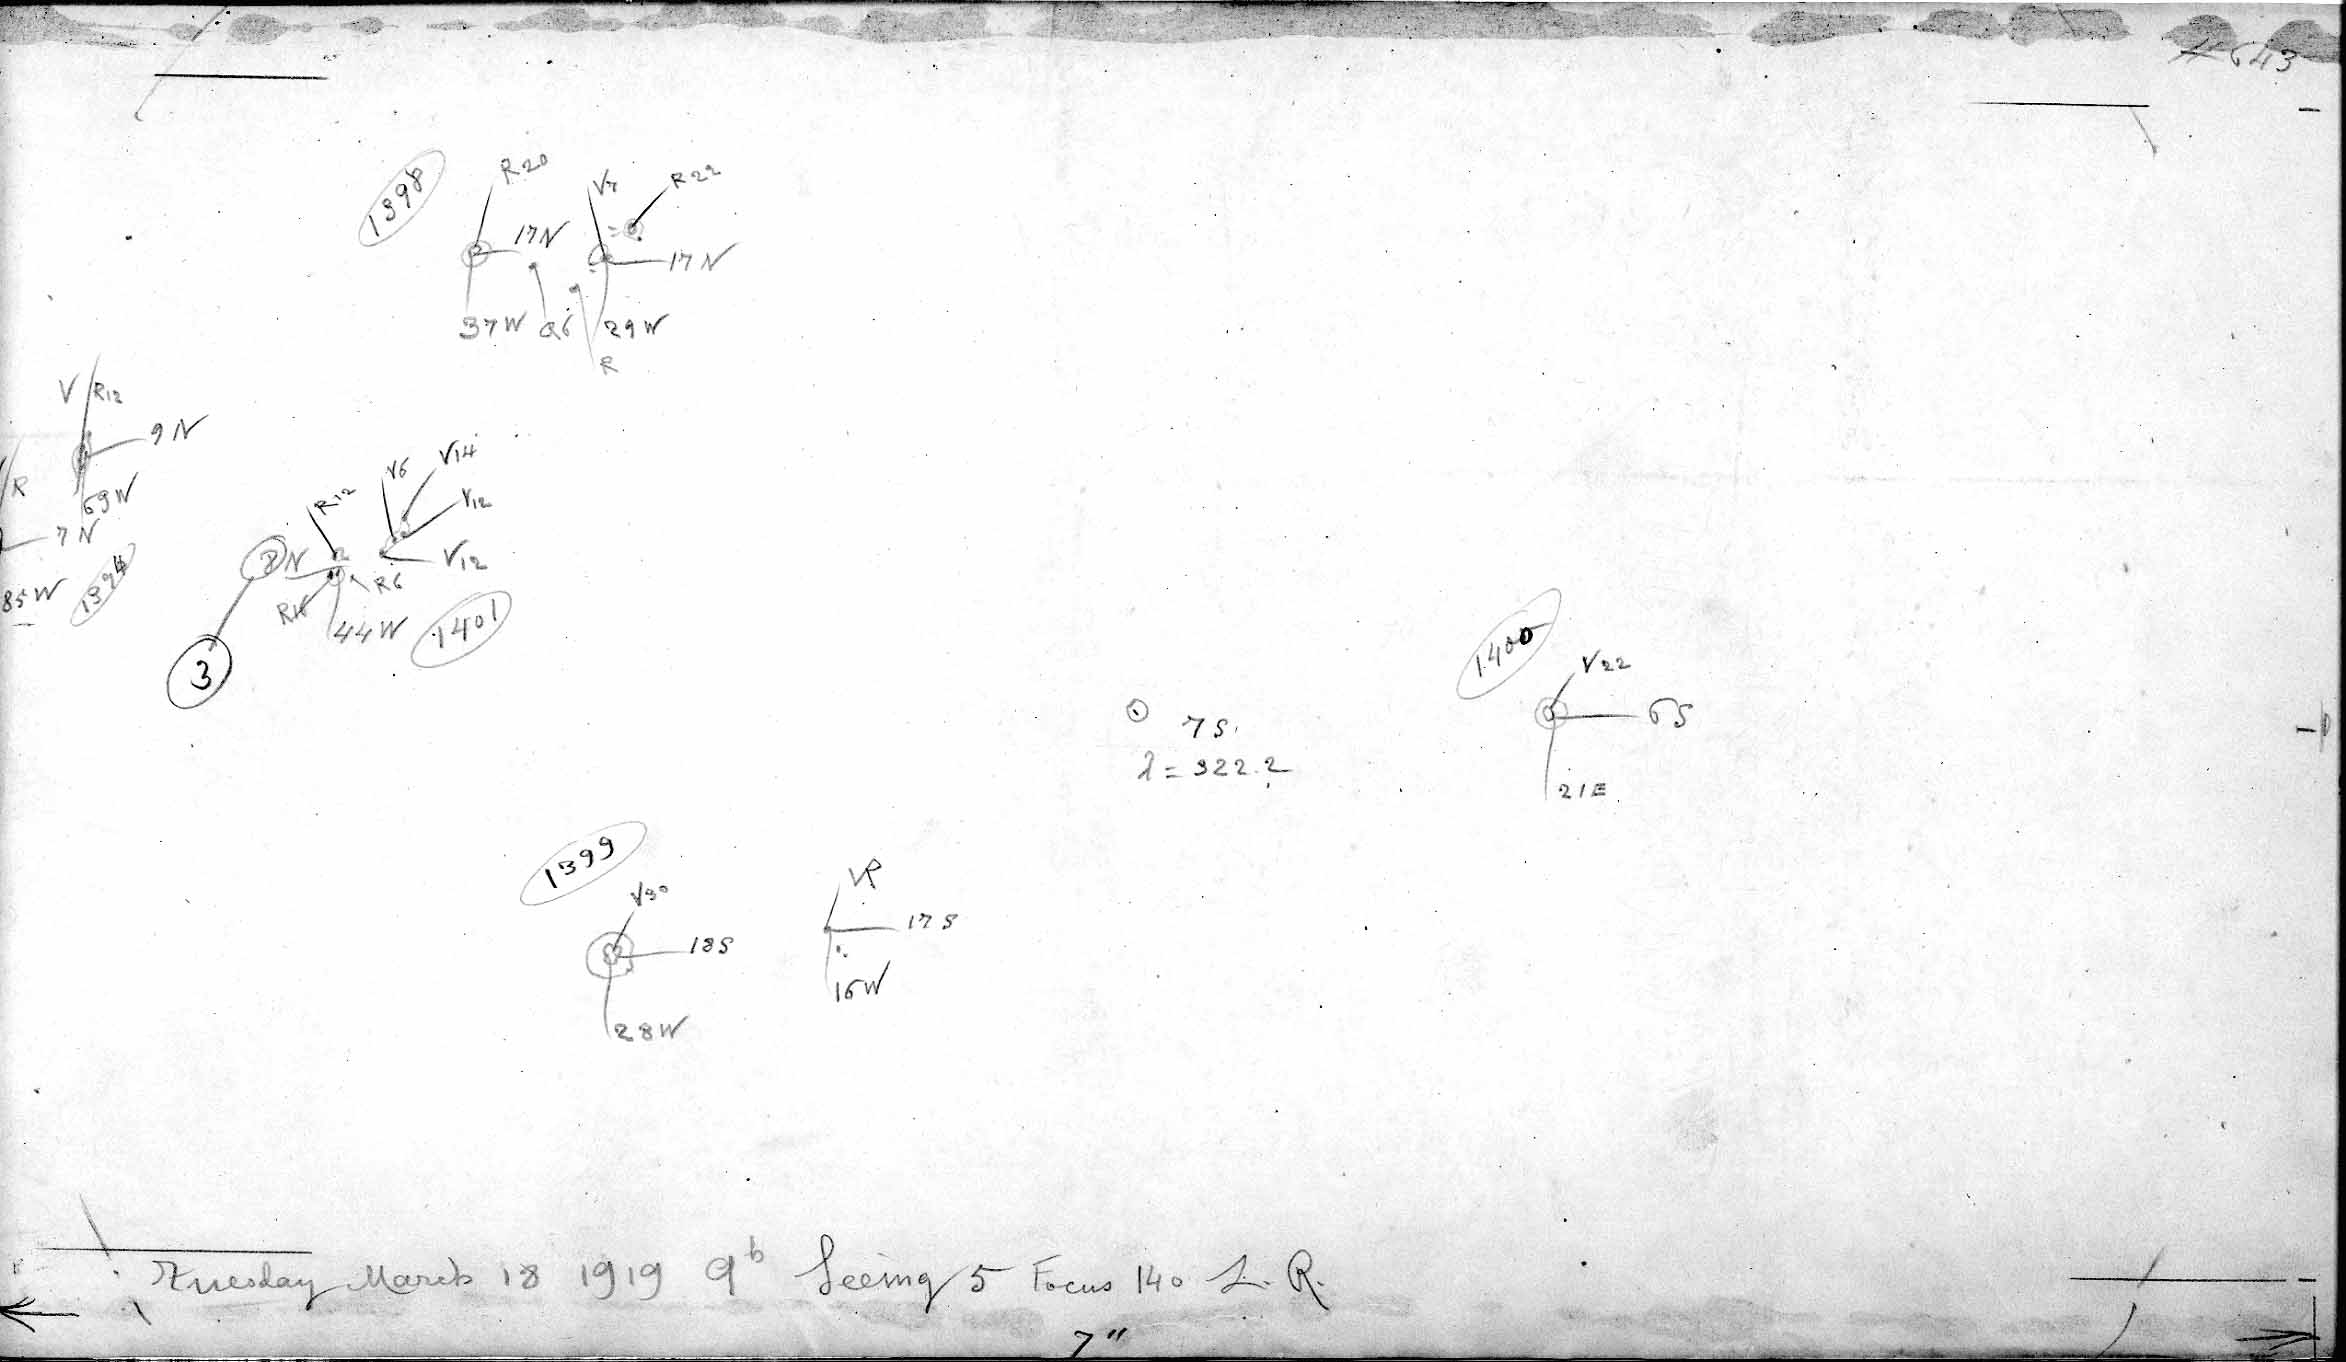 #643
1398
R20
17N
37W
V7
R22
17N
29W
R
V R12
9N
69W
R
7N
85W
R12
V6
V14
V12
V12
N
R6
44W
1401
3
1400
V22
6S
21E
7S
λ = 322.2
1399
V30
18S
28W
VR
17S
16W
Tuesday March 18 1919 9h Seeing 5 Focus 140 L. R.
7"